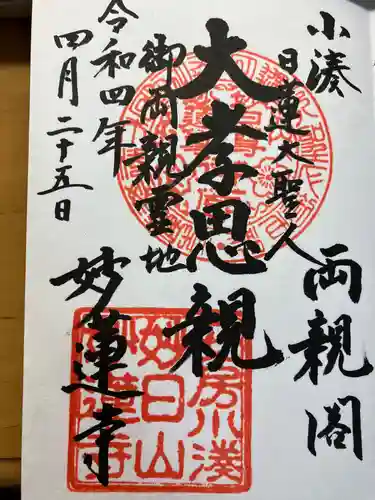 小湊
両親閣
日蓮大聖人
大孝思親
御両親霊地
妙蓮寺
令和四年
四月二十五日
房小湊
妙日山
妙蓮寺